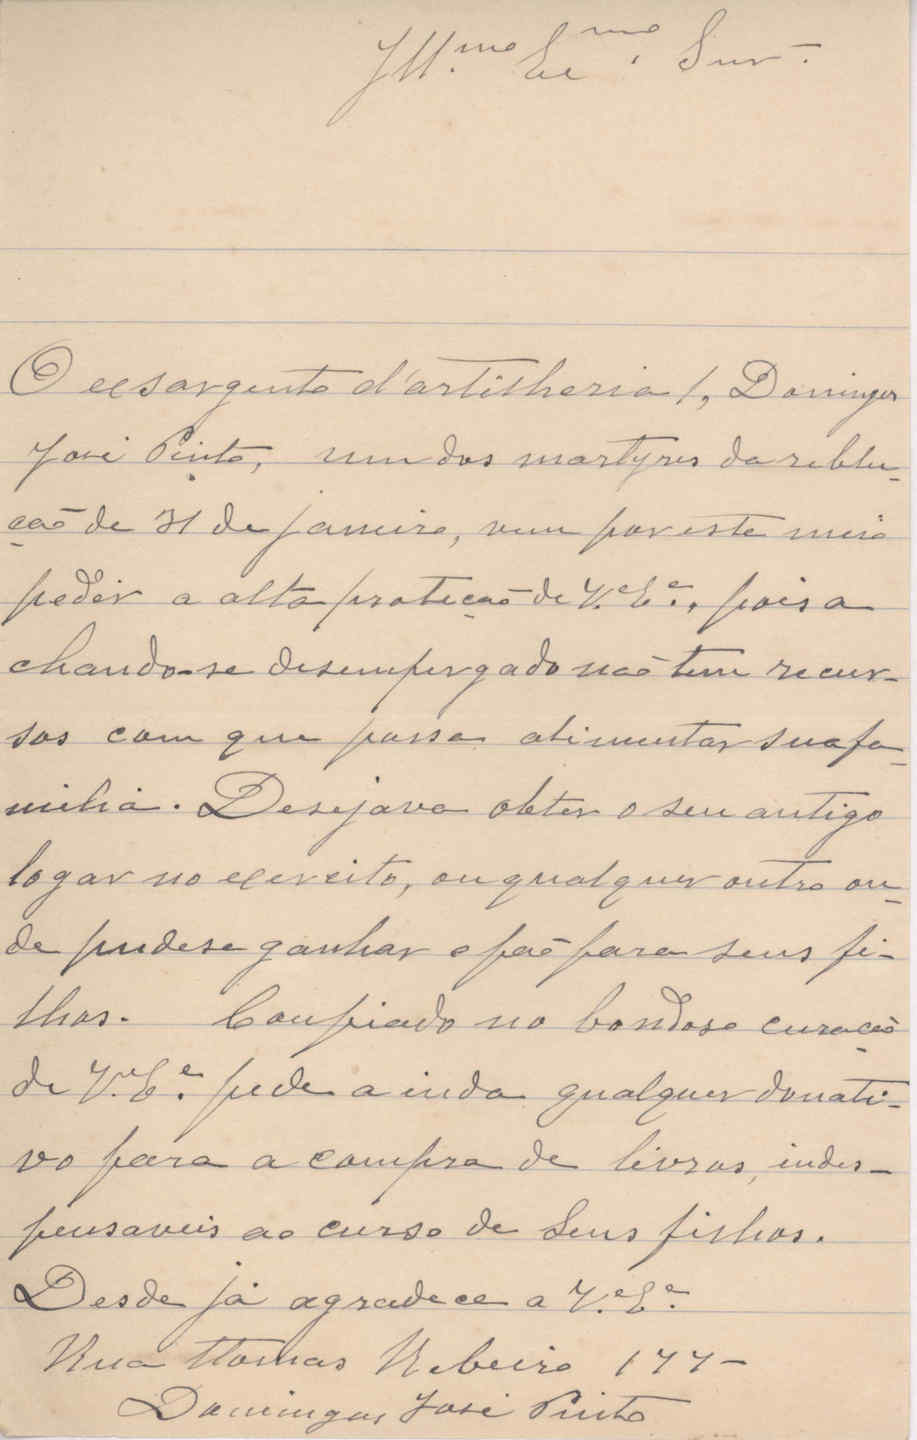 Ill.mo Ex.mo Snr.
O exsargento d'artilheria 1, Domingos
José Pinto, um dos martyres da reblu-
ção de 31 de janeiro, vem por este meio
pedir a alta proteção de V.ª E.ª, pois a
chando-se desempergado não tem recur-
sos com que possa alimentar sua fa-
milia. Desejava obter o seu antigo
logar no exercito, ou qualquer outro on-
de pudese ganhar o pão para seus fi-
lhos. Confiado no bondoso curação
de V.ª E.ª pede ainda qualquer donati-
vo para a compra de livros, indes-
pensaveis ao curso de seus filhos.
Desde já agradece a V.ª E.ª
Rua Thomas Ribeiro 177-
Domingos José Pinto